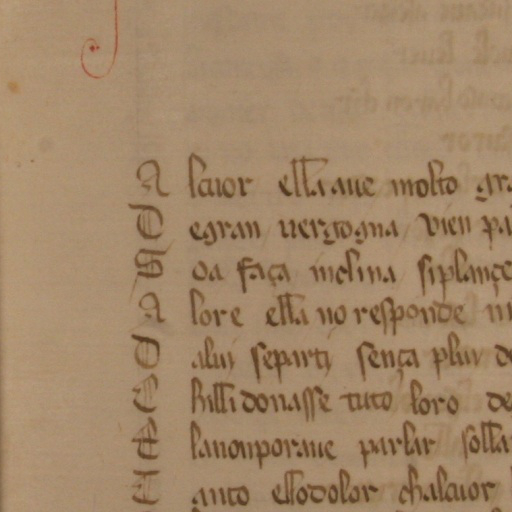 A lcuor ella aue molto gra
D egran uergogna vien pa
S oa faça inclina siplançe
A lore ella no responde ni
D aluj separtj sença pluu de
C hilli donasse tuto loro de
E lanonporaue parlar solla
T anto ellodolor chalcuor